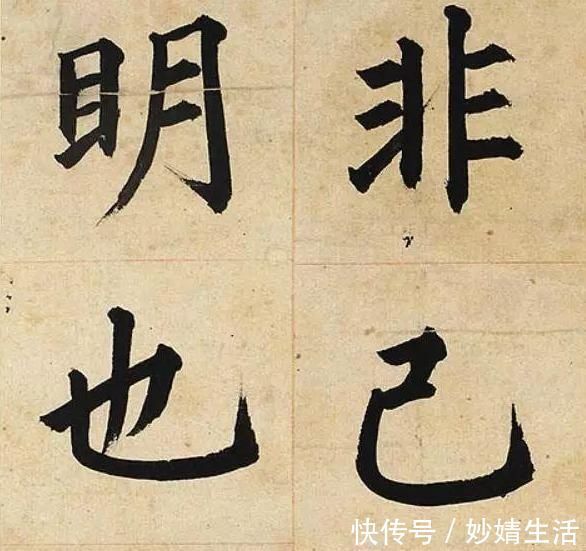 非己
明也
快传号/妙婧生活